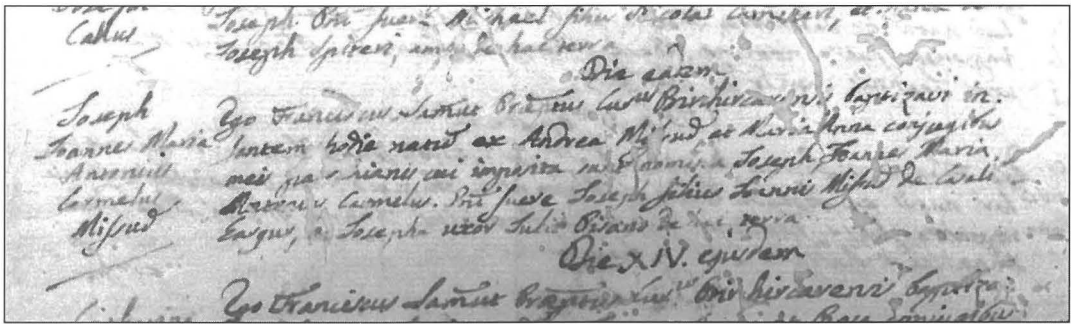 Callus
Joseph Pni fuere Michael filius Nicolai Camilleri, et Maria
Joseph Spiteri, ambo de hac terra
Die eadem
Joseph
Joannes Maria
Antonius
Carmelus
Missud
Ego Franciscus Samut Præptus Curtus Birchircarensis baptizavi in-
fantem hodie natum ex Andrea Missud et Maria Anna conjugibus
meis parochianis cui imposita sunt nomina Joseph Joannes Maria
Antonius Carmelus. Pni fuere Joseph filius Joannis Missud de Casali
Gargur, et Josepha uxor Julii Pisano de hac terra
Die XIV. ejusdem
Ego Franciscus Samut Præptus Curtus Birchircarensis baptiza-